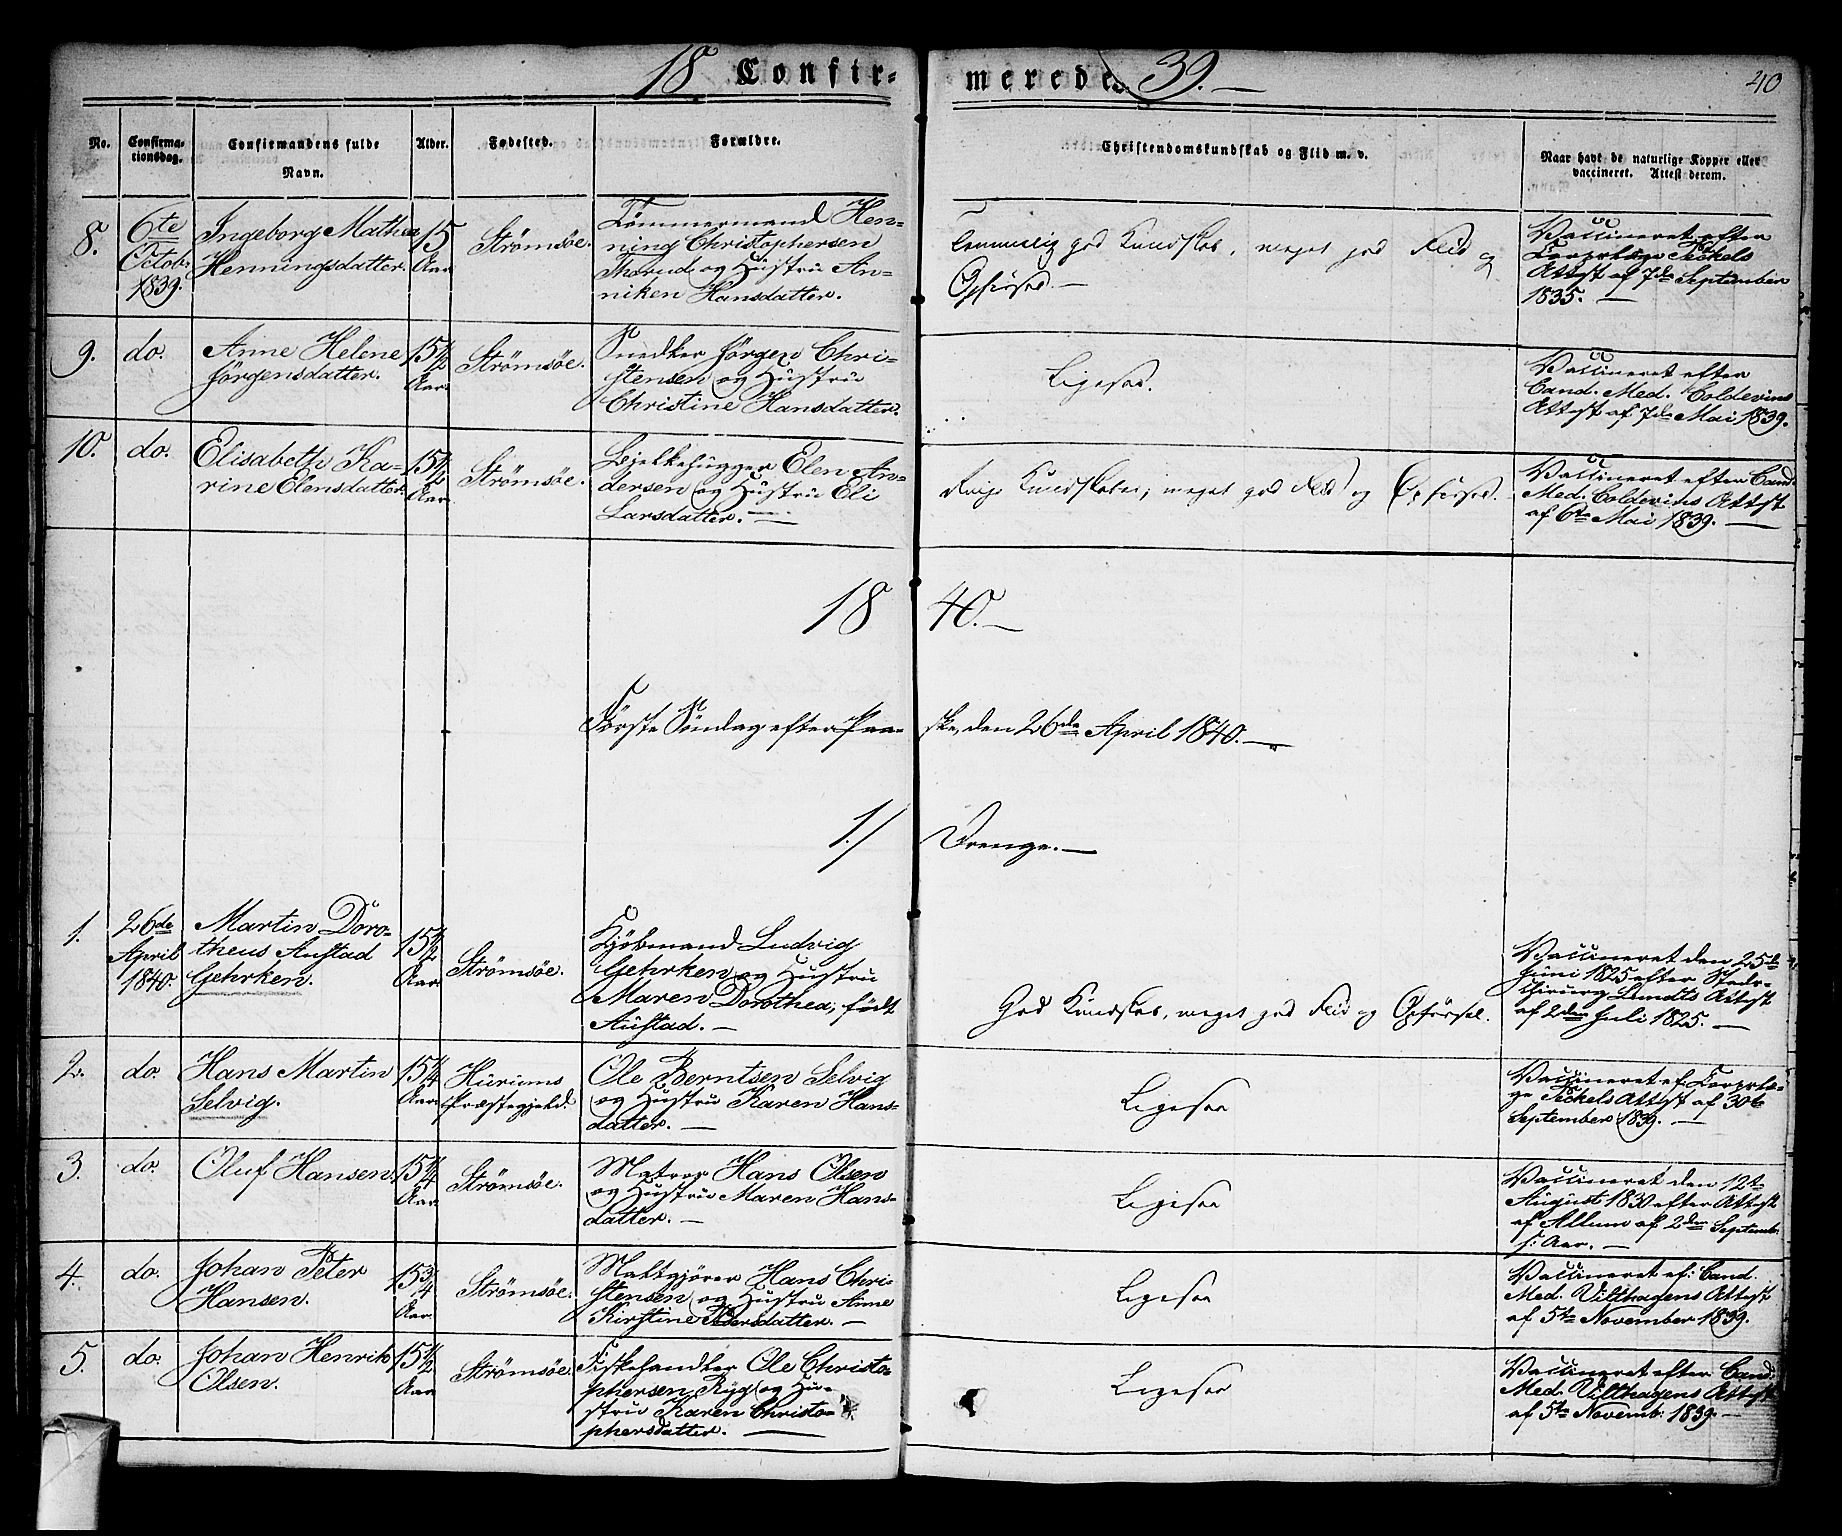 18 Confir- merede 39.
40
No.
Confirma-
tionsdag.
Confirmandens fulde
Navn.
Alder.
Fødested.
Forældre.
Christendomskundskab og Flid m. v.
Naar havt de naturlige Kopper eller
vaccineret. Attest derom.
8.
6te
Octob.
1839.
Ingeborg Mathea
Henningsdatter.
15
Aar
Strömsöe.
Tömmermand Hen-
ning Christophersen
Thorud og Hustru An-
niken Hansdatter.
god Kundskab, meget god Flid og
Opførsel.
Vaccineret efter
Corpslæge Sickels
Attest af 7de September
1835.
9.
do.
Anne Helene
Jörgensdatter.
15 1/2
Aar.
Strömsöe.
Snedker Jörgen Chri-
stensen og Hustru
Christine Hansdatter.
Ligesaa.
Vaccineret efter
Cand. Med. Coldevins
Attest af 7de Mai 1839.
10.
do.
Elisabeth Ka-
rine Elensdatter.
15 1/2
Aar
Strömsöe.
Bjelkehugger Elen An-
dersen og Hustru Eli
Larsdatter.
Kundskaber, meget god Flid og Opførsel.
Vaccineret efter Cand.
Med. Coldevins Attest
af 6te Mai 1839.
18 40.
Förste Söndag efter Paa- ske, den 26de April 1840.
1./ Drenge.
1.
26de
April
1840.
Martin Doro-
theus Austad
Gehrken.
15 1/2
Aar.
Strömsöe.
Kjöbmand Ludvig
Gehrken og Hustru
Maren Dorothea, födt
Austad.
God Kundskab, meget god Flid og Opførsel.
Vaccineret den 25de
Juni 1825 efter Stads-
chirurg Lundts Attest
af 2den Juli 1825.
2.
do.
Hans Martin
Selvig.
15 1/4
Aar.
Hurums
Præstegjeld.
Ole Berntsen Selvig
og Hustru Karen Hans-
datter.
Ligesaa
Vaccineret ef: Corpslæ-
ge Sickels Attest af 30te
September 1839.
3.
do.
Oluf Hansen.
15 1/4
Aar
Strömsöe.
Matros Hans Olsen
og Hustru Maren Hans-
datter.
Ligesaa
Vaccineret den 12te
August 1830 efter Attest
af Allum af 2den Septemb.
s: Aar.
4.
do.
Johan Peter
Hansen.
15 3/4
Aar
Strömsöe.
Maltgjörer Hans Chri-
stensen og Hustru Anne
Kirstine Pedersdatter.
Ligesaa
Vaccineret ef: Cand.
Med. Vilthagens Attest
af 5te November 1839.
5.
do.
Johan Henrik
Olsen.
15 1/2
Aar
Strömsöe.
Fiskehandler Ole Christo-
phersen Ryg og Hu-
stru Karen Christo-
phersdatter.
Ligesaa
Vaccineret efter Cand.
Med. Vilthagens Attest
af 5te Novemb: 1839.